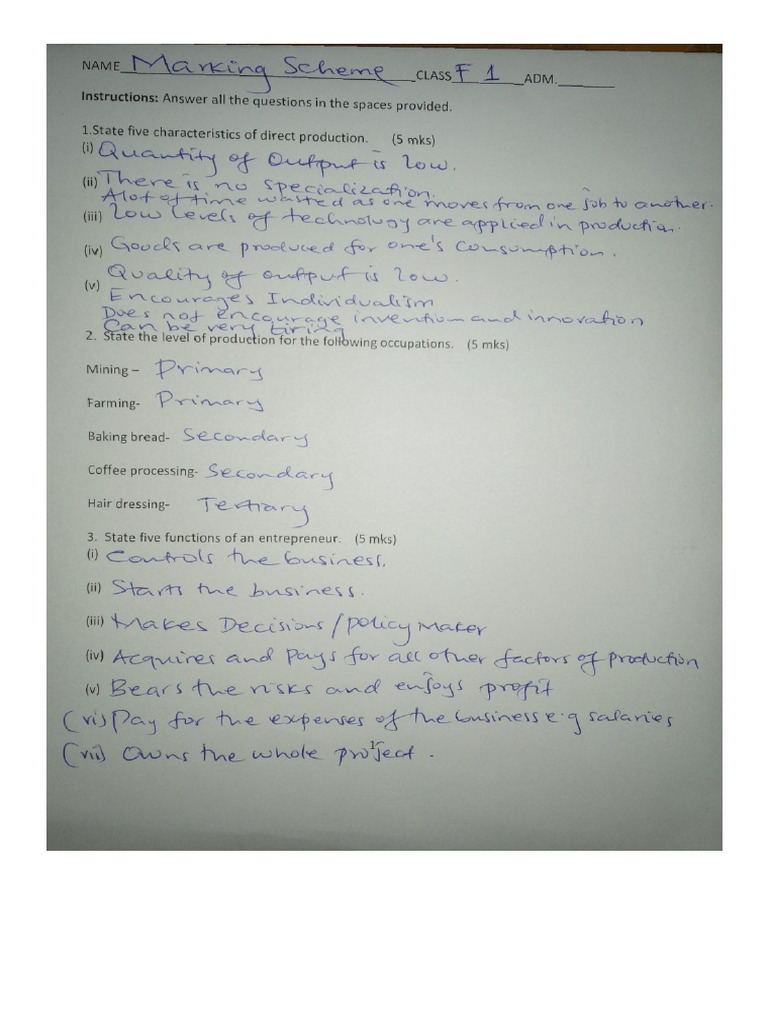 NAME Marking Scheme CLASS F 1 ADM.
Instructions: Answer all the questions in the spaces provided.
1.State five characteristics of direct production. (5 mks)
(i) Quantity of Output is low.
(ii) There is no specialization.
A lot of time wasted as one moves from one job to another.
(iii) Low levels of technology are applied in production.
(iv) Goods are produced for one's consumption.
(v) Quality of output is low.
Encourages Individualism
Does not encourage invention and innovation
Can be very tiring
2. State the level of production for the following occupations. (5 mks)
Mining – Primary
Farming- Primary
Baking bread- Secondary
Coffee processing- Secondary
Hair dressing- Tertiary
3. State five functions of an entrepreneur. (5 mks)
(i) Controls the business.
(ii) Starts the business.
(iii) Makes Decisions/policy Maker
(iv) Acquires and Pays for all other factors of production
(v) Bears the risks and enjoys profit
(vi) Pay for the expenses of the business e.g salaries
(vii) Owns the whole project.
1